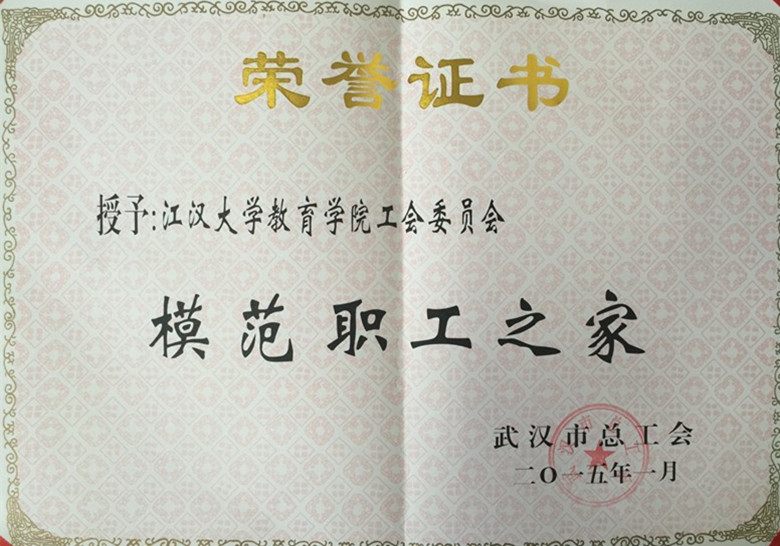 荣誉证书
授予:江汉大学教育学院工会委员会
模范职工之家
武汉市总工会
二〇一五年一月